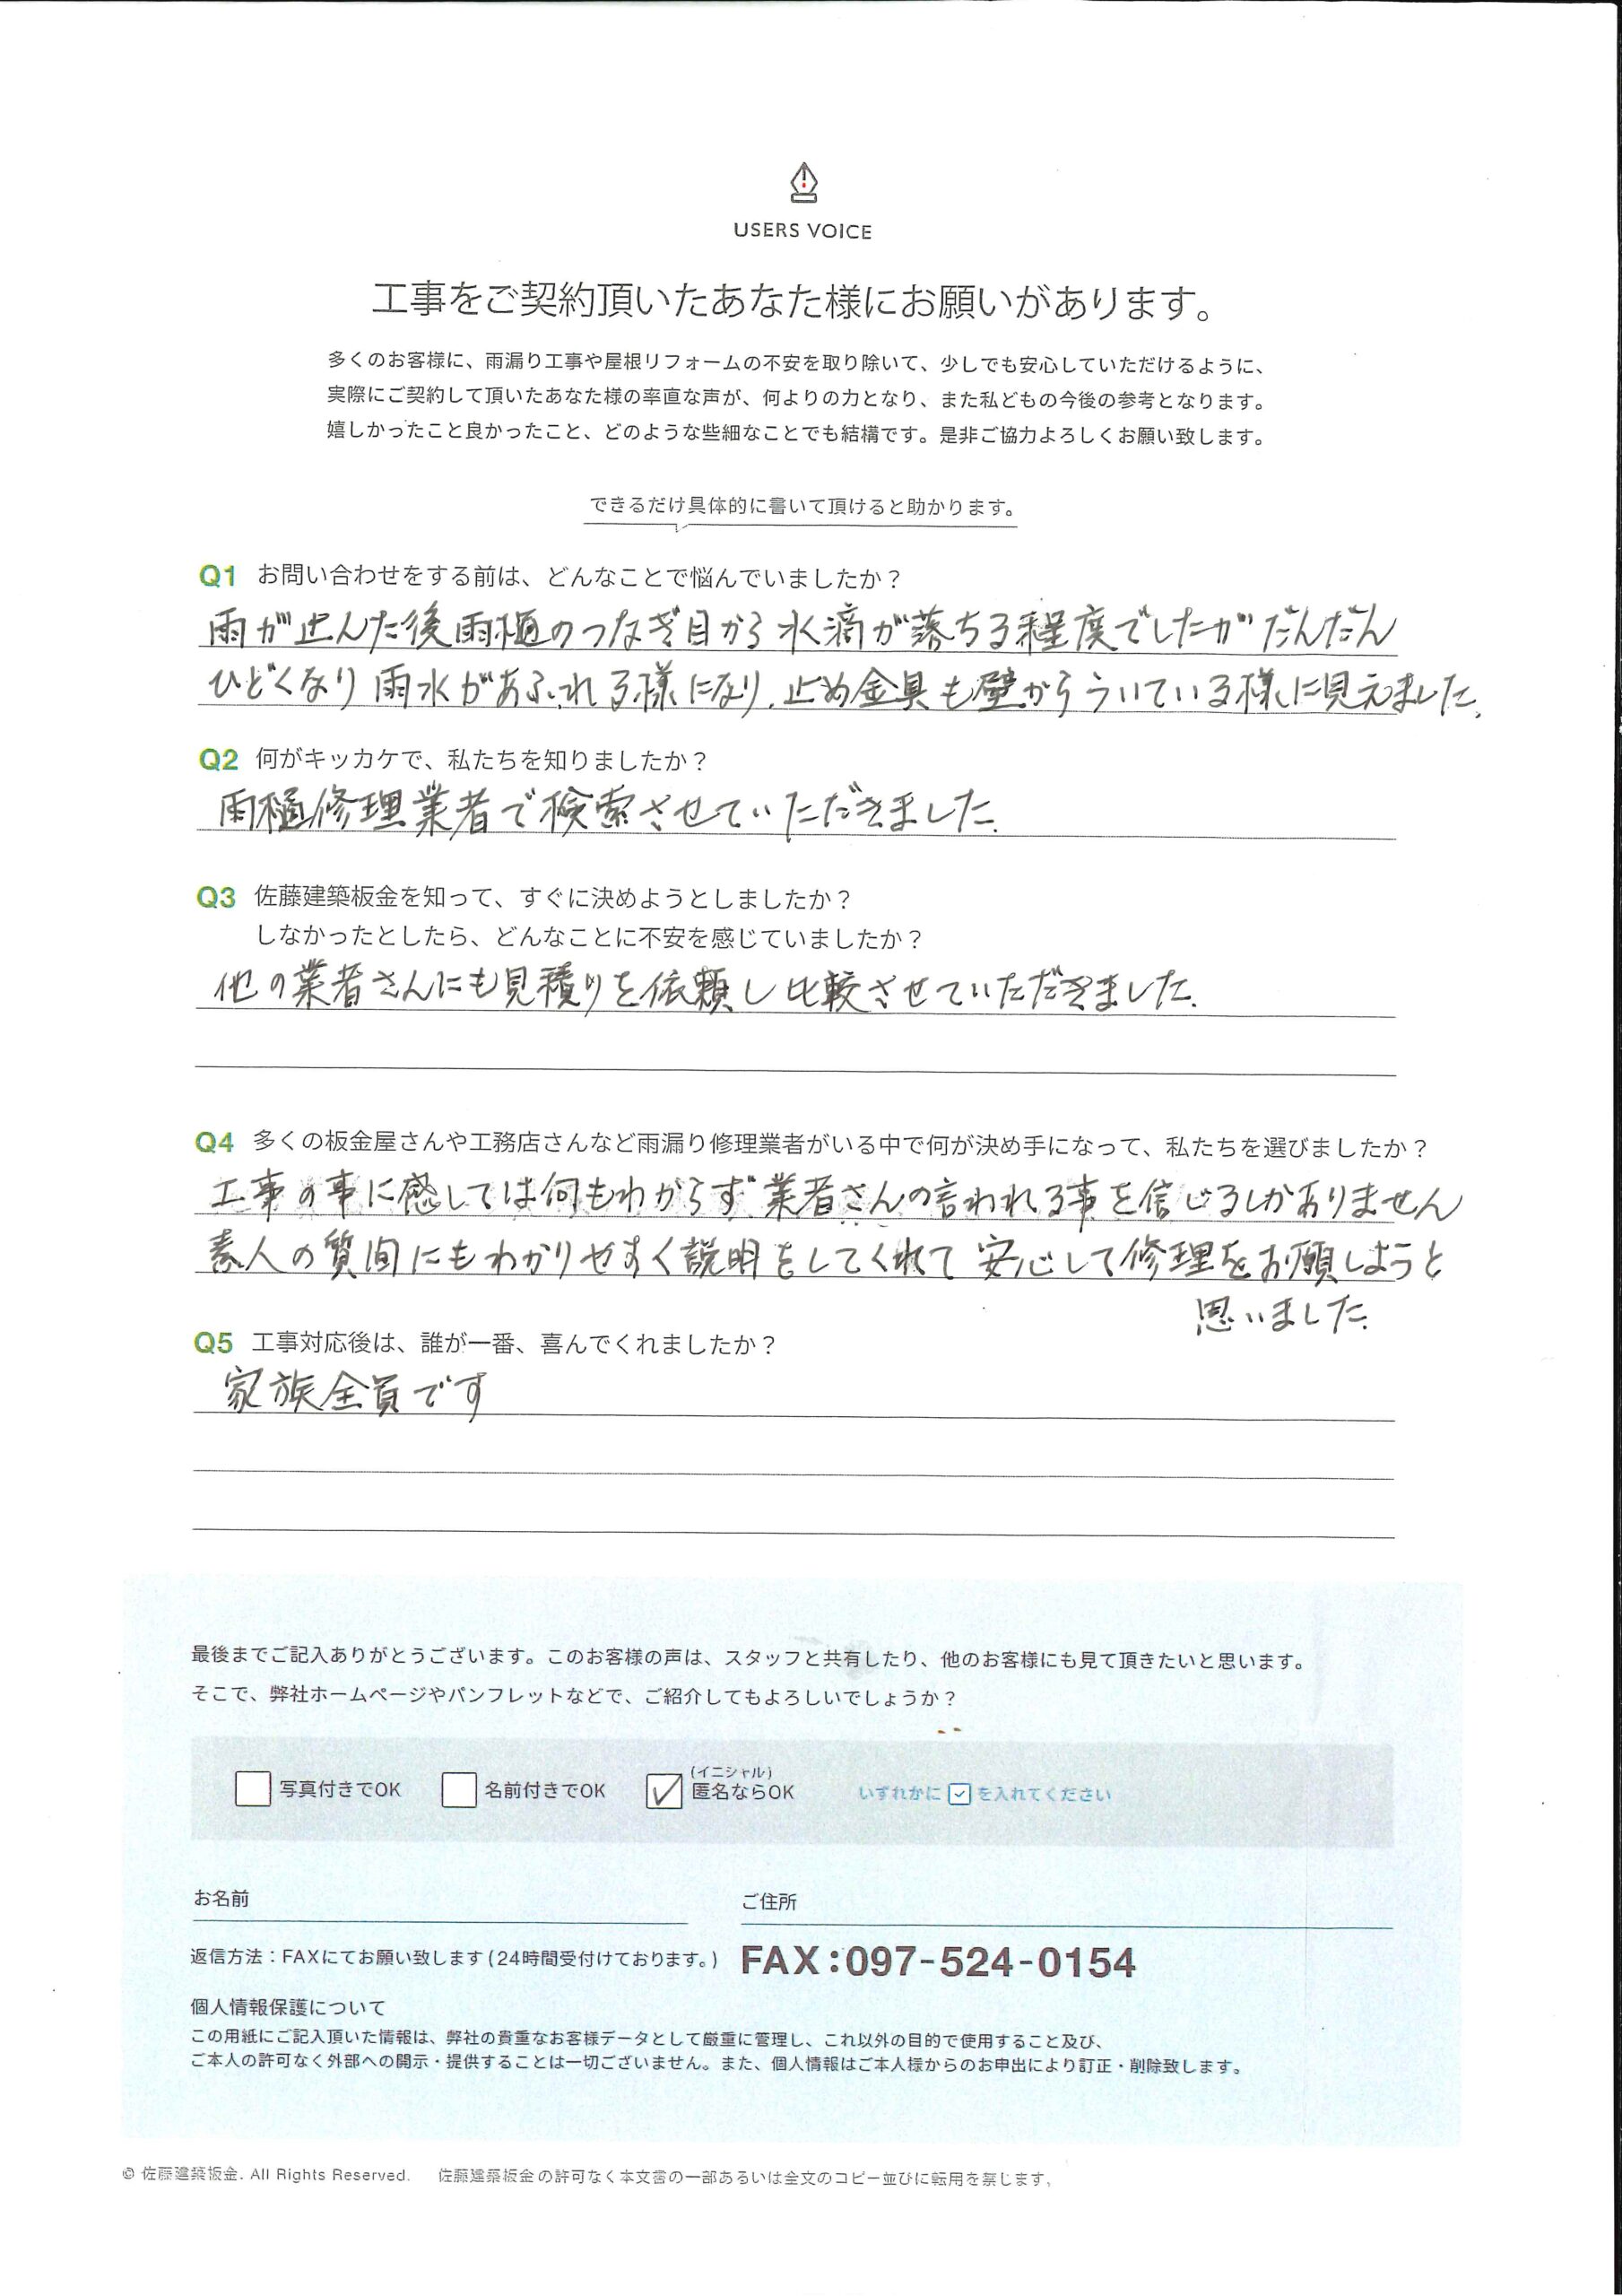 USERS VOICE
工事をご契約頂いたあなた様にお願いがあります。
多くのお客様に、雨漏り工事や屋根リフォームの不安を取り除いて、少しでも安心していただけるように、
実際にご契約して頂いたあなた様の率直な声が、何よりの力となり、また私どもの今後の参考となります。
嬉しかったこと良かったこと、どのような些細なことでも結構です。是非ご協力よろしくお願い致します。
できるだけ具体的に書いて頂けると助かります。
Q1 お問い合わせをする前は、どんなことで悩んでいましたか？
雨が止んだ後雨樋のつなぎ目から水滴が落ちる程度でしたがだんだん
ひどくなり雨水があふれる様になり、止め金具も壁からういている様に見えました。
Q2 何がキッカケで、私たちを知りましたか？
雨樋修理業者で検索させていただきました。
Q3 佐藤建築板金を知って、すぐに決めようとしましたか？
しなかったとしたら、どんなことに不安を感じていましたか？
他の業者さんにも見積りを依頼し比較させていただきました。
Q4 多くの板金屋さんや工務店さんなど雨漏り修理業者がいる中で何が決め手になって、私たちを選びましたか？
工事の事に感しては何もわからず業者さんの言われる事を信じるしかありません
素人の質問にもわかりやすく説明をしてくれて安心して修理をお願しようと
思いました。
Q5 工事対応後は、誰が一番、喜んでくれましたか？
家族全員です
最後までご記入ありがとうございます。このお客様の声は、スタッフと共有したり、他のお客様にも見て頂きたいと思います。
そこで、弊社ホームページやパンフレットなどで、ご紹介してもよろしいでしょうか？
(イニシャル)
写真付きでOK 名前付きでOK 匿名ならOK いずれかに を入れてください
お名前 ご住所
返信方法：FAXにてお願い致します(24時間受付けております。) FAX：097-524-0154
個人情報保護について
この用紙にご記入頂いた情報は、弊社の貴重なお客様データとして厳重に管理し、これ以外の目的で使用すること及び、
ご本人の許可なく外部への開示・提供することは一切ございません。また、個人情報はご本人様からのお申出により訂正・削除致します。
© 佐藤建築板金. All Rights Reserved. 佐藤建築板金の許可なく本文書の一部あるいは全文のコピー並びに転用を禁じます。